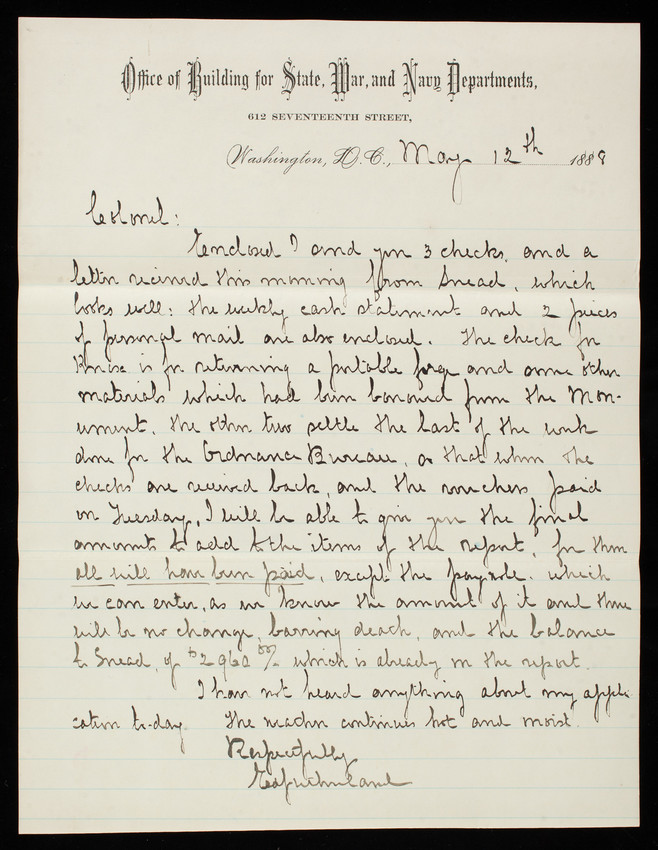 Office of Building for State, War, and Navy Departments,
612 SEVENTEENTH STREET,
Washington, D.C., May 12th 1888
Colonel:
Enclosed I send you 3 checks, and a
letter received this morning from Snead, which
looks well: the weekly cash statement and 2 pieces
of personal mail are also enclosed. The check for
is for returning a portable forge and some other
materials which had been borrowed from the Mon-
ument. The other two settle the last of the work
done for the Ordnance Bureau, so that when the
checks are received back, and the vouchers paid
on Tuesday, I will be able to give you the final
amounts to add to the items of the report, for then
all will have been paid, except the payrole. which
we can enter, as we know the amount of it and there
will be no change, barring death, and the balance
to Snead, of $2960 which is already in the report.
I have not heard anything about my appli-
cation to-day. The weather continues hot and moist.
Respectfully